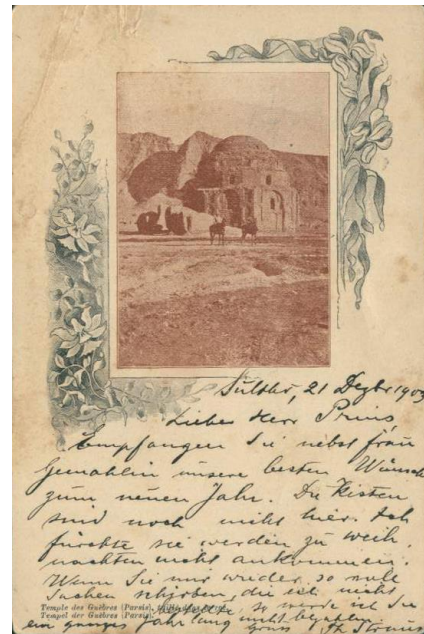 21 Dezbr 1903
Liebe Herr Prins
Empfangen Sie nebst frau
Gemahlin unsere besten Wünsche
zum neuen Jahr. Die Kisten
sind noch nicht hier. Ich
fürchte sie werden zu weih-
nachten nicht ankommen.
Wenn Sie mir wieder so
Sachen die ich nicht
so werde ich Sie
ein ganzes Jahr lang nicht
Temple des Guèbres (Parsis)
Tempel der Guèbres (Parsis)